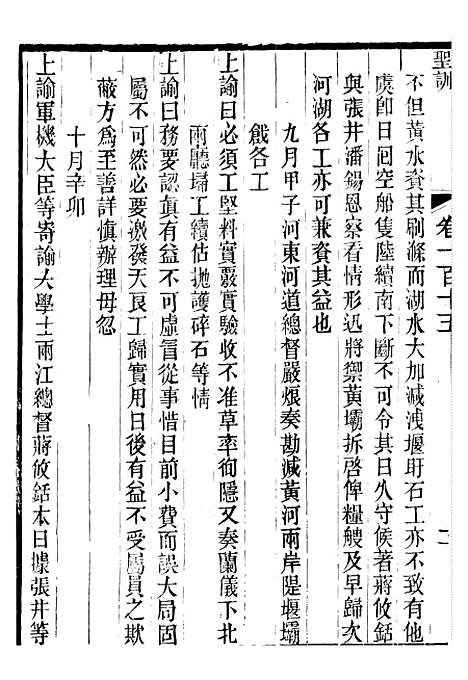 聖訓 卷一百十三 二
不但黃水資其刷滌而湖水大加減洩堰盱石工亦不致有他
虞卽日囘空船隻陸續南下斷不可令其日久守候著蔣攸銛
與張井潘錫恩察看情形迅將禦黃壩拆啓俾糧艘及早歸次
河湖各工亦可兼資其益也
九月甲子河東河道總督嚴烺奏勘減黃河兩岸隄堰壩
戧各工
上諭曰必須工堅料實覈實驗收不准草率徇隱又奏蘭儀下北
兩廳埽工續估拋護碎石等情
上諭曰務要認眞有益不可虛冒從事惜目前小費而誤大局固
屬不可然必要激發天良工歸實用日後有益不受屬員之欺
蔽方爲至善詳愼辦理毋忽
十月辛卯
上諭軍機大臣等寄諭大學士兩江總督蔣攸銛本日據張井等